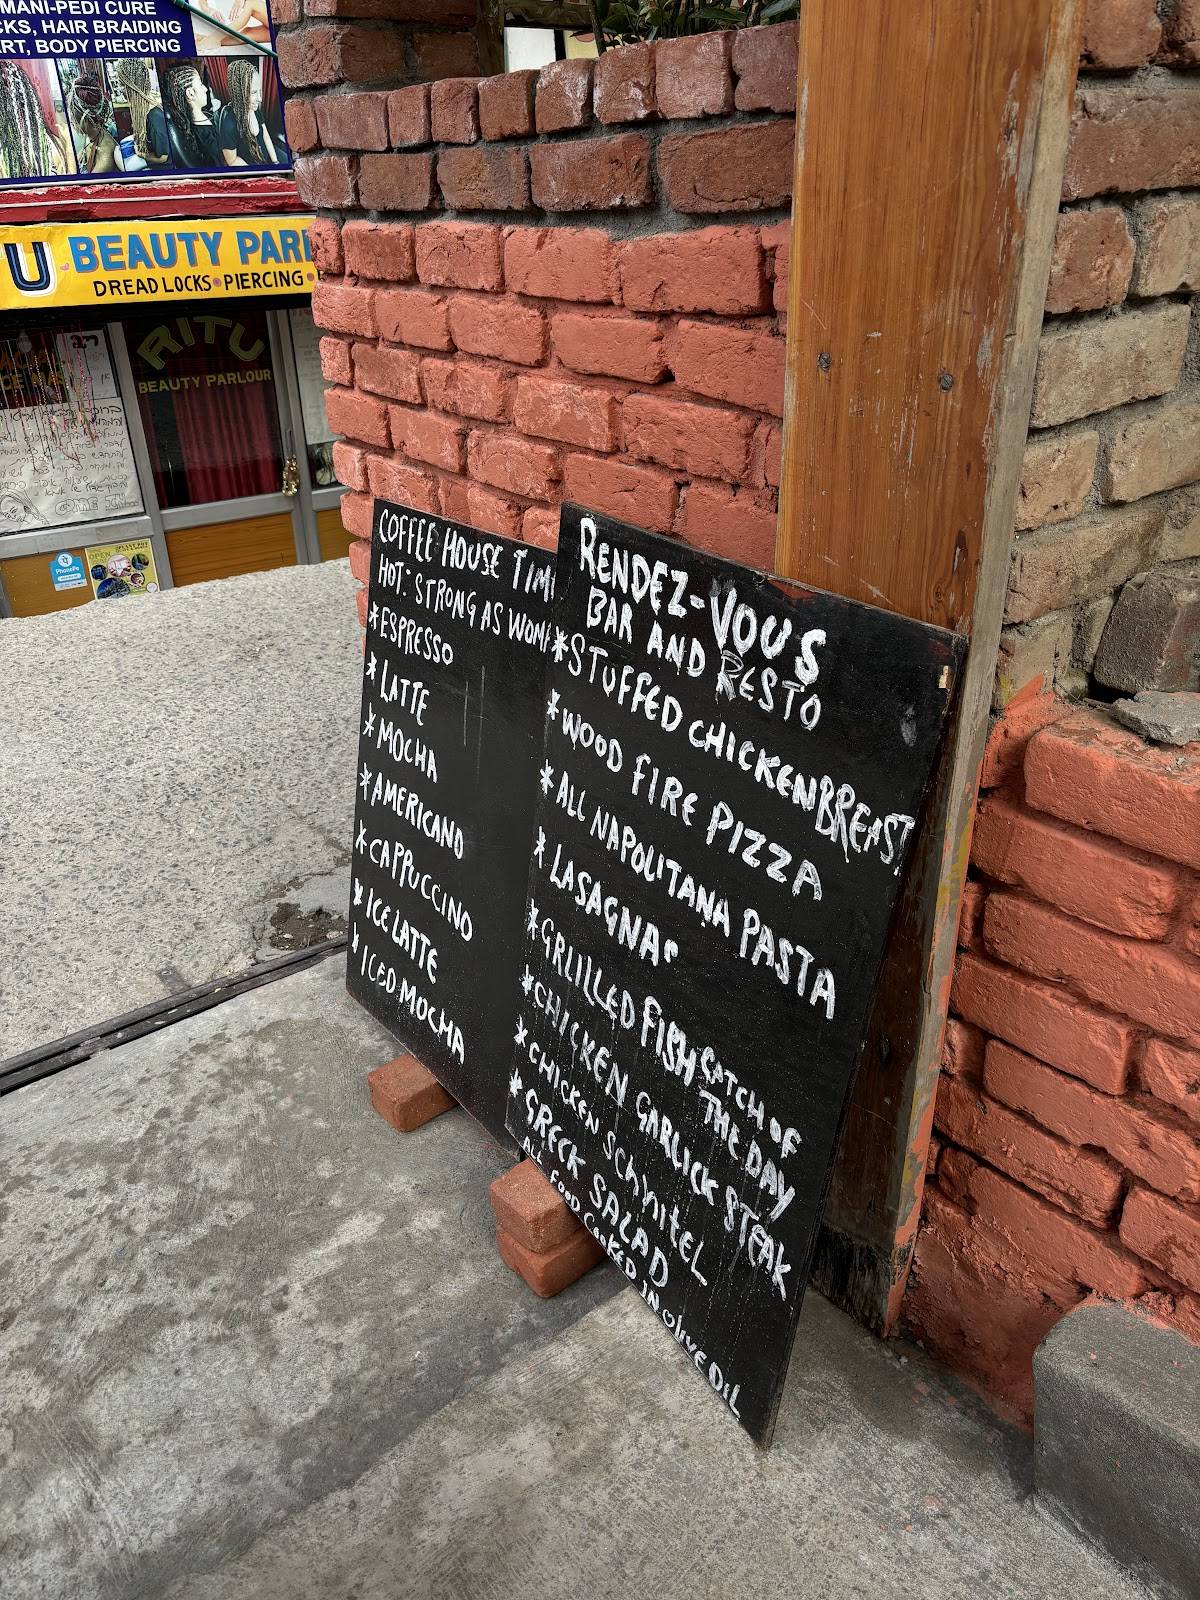 MANI-PEDI CURE
CKS, HAIR BRAIDING
ART, BODY PIERCING
U BEAUTY PARL
DREADLOCKS • PIERCING •
RITU
BEAUTY PARLOUR
OPEN
PhonePe
COFFEE HOUSE TIM
HOT: STRONG AS WOM
*ESPRESSO
*LATTE
*MOCHA
*AMERICANO
*CAPPUCCINO
*ICE LATTE
*ICED MOCHA
RENDEZ-VOUS
BAR AND RESTO
*STUFFED CHICKEN BREAST
*WOOD FIRE PIZZA
*ALL NAPOLITANA PASTA
*LASAGNAS
*GRLILLED FISH CATCH OF THE DAY
*CHICKEN GARLICK STEAK
*CHICKEN SCHNITEL
*GRECK SALAD
ALL FOOD COOKED IN OLIVE OIL